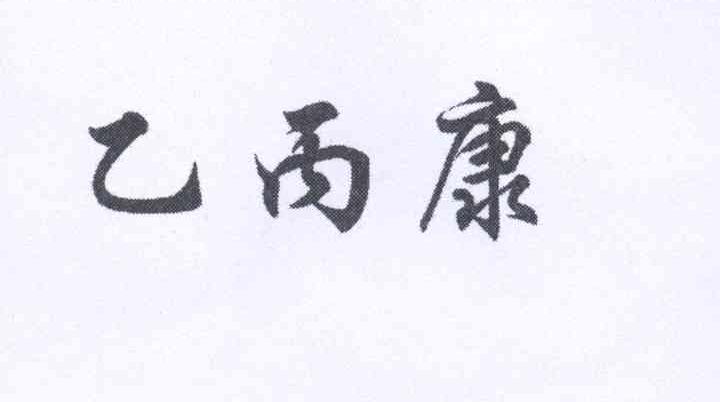 乙丙康